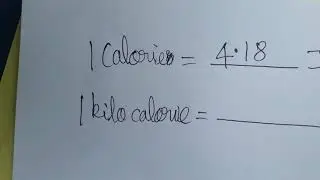 1 Calorie = 4.18 =
1 kilo calorie = ______